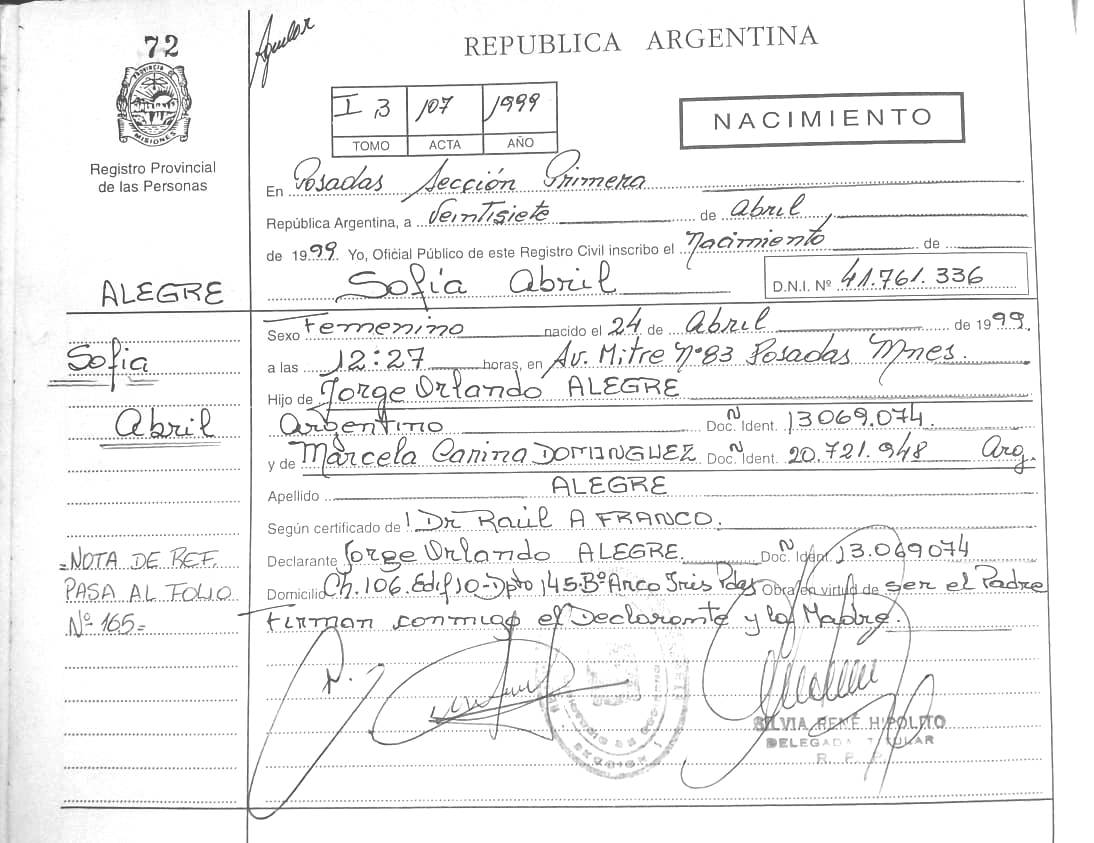 72
Aguilar
REPUBLICA ARGENTINA
PROVINCIA
MISIONES
Registro Provincial
de las Personas
I 3 107 1999
TOMO ACTA AÑO
NACIMIENTO
En Posadas Sección Primera
República Argentina, a Veintisiete de Abril
de 1999. Yo, Oficial Público de este Registro Civil inscribo el Nacimiento de
ALEGRE
Sofía Abril
D.N.I. Nº 41.761.336
Sexo Femenino nacido el 24 de Abril de 1999.
Sofia
a las 12:27 horas, en Av. Mitre Nº83 Posadas Mnes.
Hijo de Jorge Orlando ALEGRE
Abril
Argentino Doc. Ident. 13.069.074.
y de Marcela Carina DOMINGUEZ Doc. Ident. 20.721.948 Arg.
Apellido ALEGRE
Según certificado de l Dr Raúl A FRANCO.
Declarante Jorge Orlando ALEGRE. Doc. Ident 13.069074
=NOTA DE REF.
PASA AL FOLIO
Nº 165=
Domicilio Ch.106.Edif10-Dpto 145-Bº Arco Iris Pdas Obra en virtud de ser el Padre
Firman conmigo el Declarante y la Madre.
SILVIA RENÉ HIPOLITO
DELEGADA TITULAR
R. P. P.